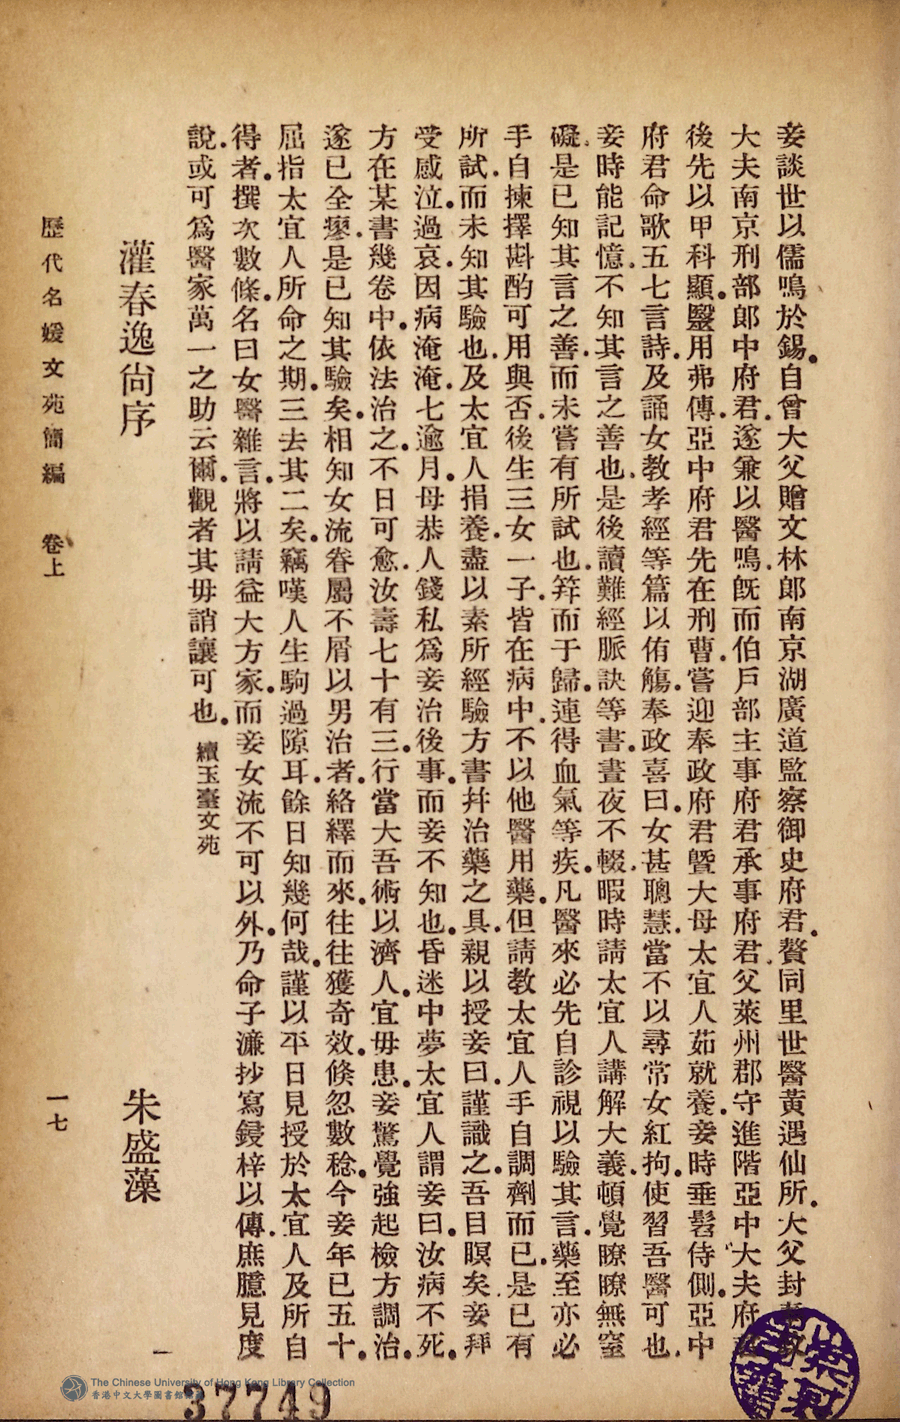 妾談世以儒鳴於錫。自曾大父贈文林郎南京湖廣道監察御史府君。贅同里世醫黃遇仙所。大父封
大夫南京刑部郎中府君。遂兼以醫鳴。旣而伯戶部主事府君承事府君父萊州郡守進階亞中大夫府
後先以甲科顯。毉用弗傳。亞中府君先在刑曹。嘗迎奉政府君曁大母太宜人茹就養。妾時垂髫侍側。亞中
府君命歌五七言詩。及誦女教孝經等篇以侑觴。奉政喜曰。女甚聰慧。當不以尋常女紅拘。使習吾醫可也。
妾時能記憶。不知其言之善也。是後讀難經脈訣等書。晝夜不輟。暇時請太宜人講解大義。頓覺瞭瞭無窒
礙。是已知其言之善。而未嘗有所試也。笄而于歸。連得血氣等疾。凡醫來必先自診視以驗其言。藥至亦必
手自揀擇斟酌可用與否。後生三女一子。皆在病中。不以他醫用藥。但請教太宜人手自調劑而已。是已有
所試。而未知其驗也。及太宜人捐養。盡以素所經驗方書幷治藥之具。親以授妾曰。謹識之。吾目瞑矣。妾拜
受感泣。過哀。因病淹淹。七逾月。母恭人錢私爲妾治後事。而妾不知也。昏迷中夢太宜人謂妾曰。汝病不死。
方在某書幾卷中。依法治之。不日可愈。汝壽七十有三。行當大吾術以濟人。宜毋患。妾驚覺強起檢方調治。
遂已全瘳。是已知其驗矣。相知女流眷屬不屑以男治者。絡繹而來。往往獲奇效。倐忽數稔。今妾年已五十。
屈指太宜人所命之期。三去其二矣。竊嘆人生駒過隙耳。餘日知幾何哉。謹以平日見授於太宜人及所自
得者。撰次數條。名曰女醫雜言。將以請益大方家。而妾女流不可以外。乃命子濂抄寫鋟梓以傳。庶臆見度
說。或可爲醫家萬一之助云爾。觀者其毋誚讓可也。 續玉臺文苑
灌春逸尙序 朱盛藻
歷代名媛文苑簡編 卷上 一七
37749
The Chinese University of Hong Kong Library Collection
香港中文大學圖書館